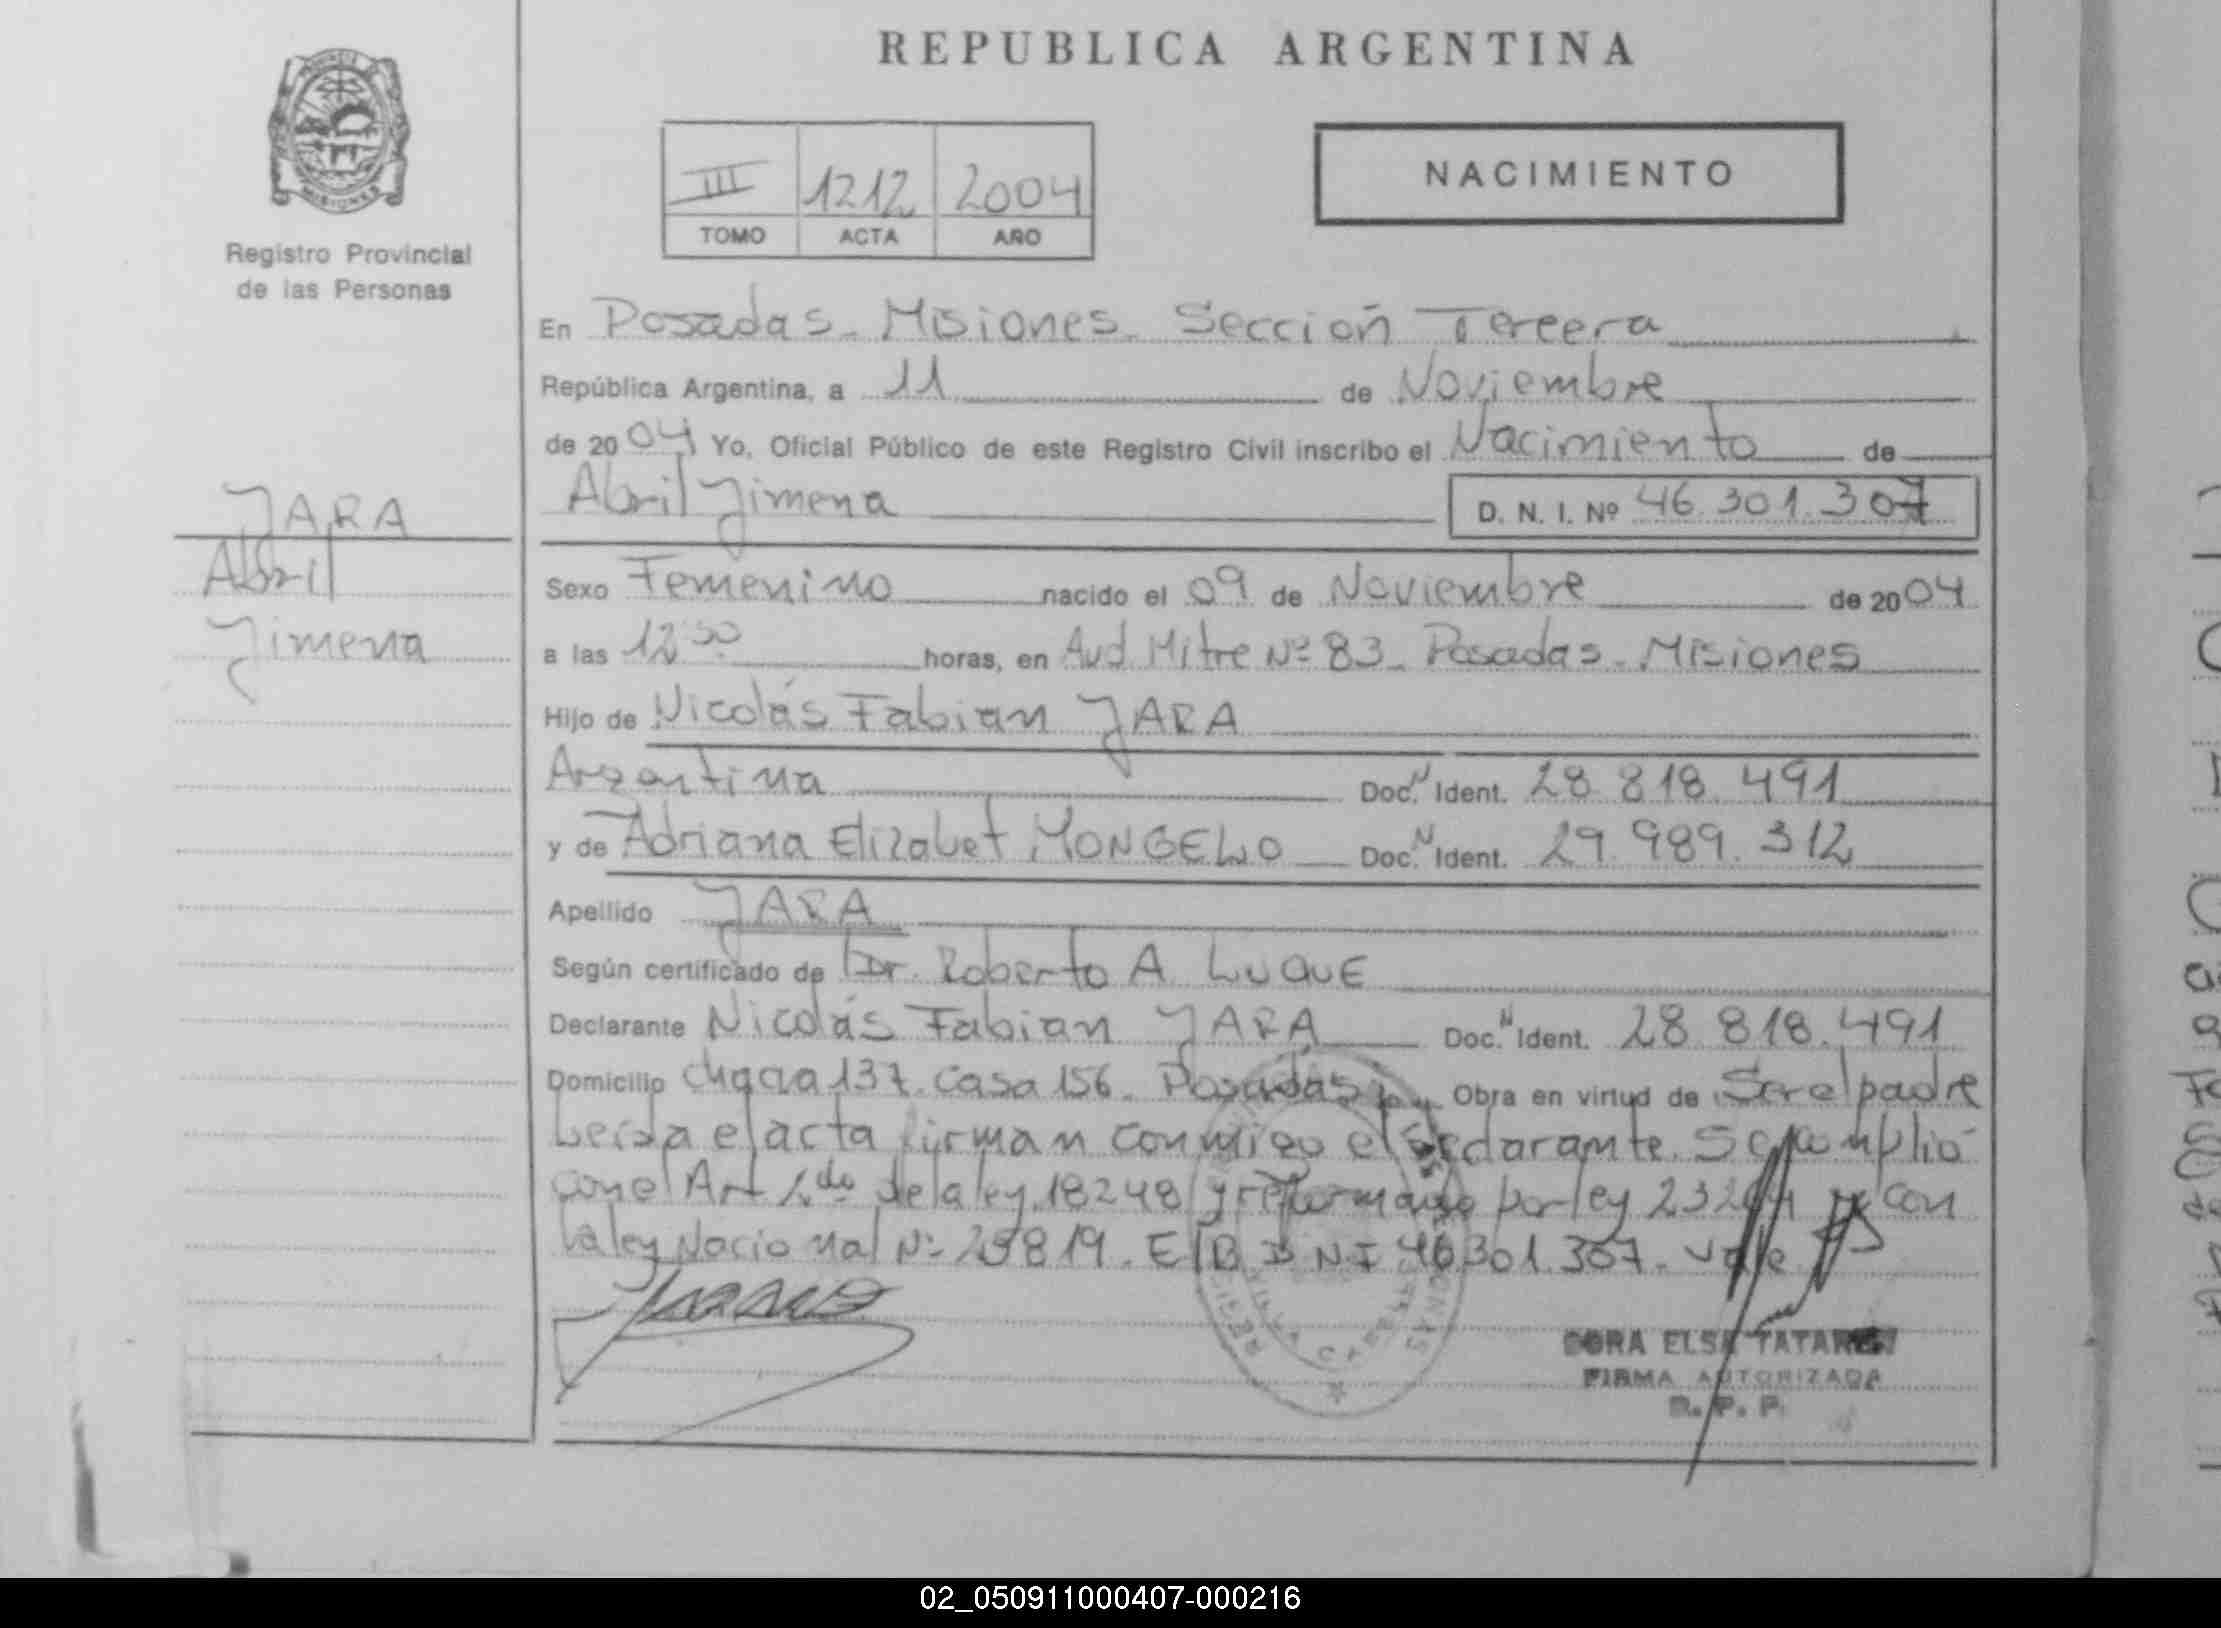 REPUBLICA ARGENTINA
PROVINCIA DE MISIONES
Registro Provincial
de las Personas
III 1212 2004
TOMO ACTA AÑO
NACIMIENTO
En Posadas - Misiones - Sección Tercera
República Argentina, a 11 de Noviembre
de 2004 Yo, Oficial Público de este Registro Civil inscribo el Nacimiento de
Abril Jimena D. N. I. Nº 46.301.307
JARA
Abril
Jimena
Sexo Femenino nacido el 09 de Noviembre de 2004
a las 12 30 horas, en Avd Mitre Nº 83 - Posadas - Misiones
Hijo de Nicolás Fabian JARA
Argentina Doc. N Ident. 28.818.491
y de Adriana Elizabet MONGELO Doc. N Ident. 29.989.312
Apellido JARA
Según certificado de Dr. Roberto A LUQUE
Declarante Nicolás Fabian JARA Doc. N Ident. 28.818.491
Domicilio Chacra 137. Casa 156 - Posadas Obra en virtud de Ser el padre
Leida el acta firman conmigo el declarante. Se cumplió
con el Art 2do de la ley 18248 y reformado por ley con
la ley Nacional Nº E/B D N I 46301.307 - Vale
DORA ELSA
FIRMA AUTORIZADA
R. P. P.
02_050911000407-000216